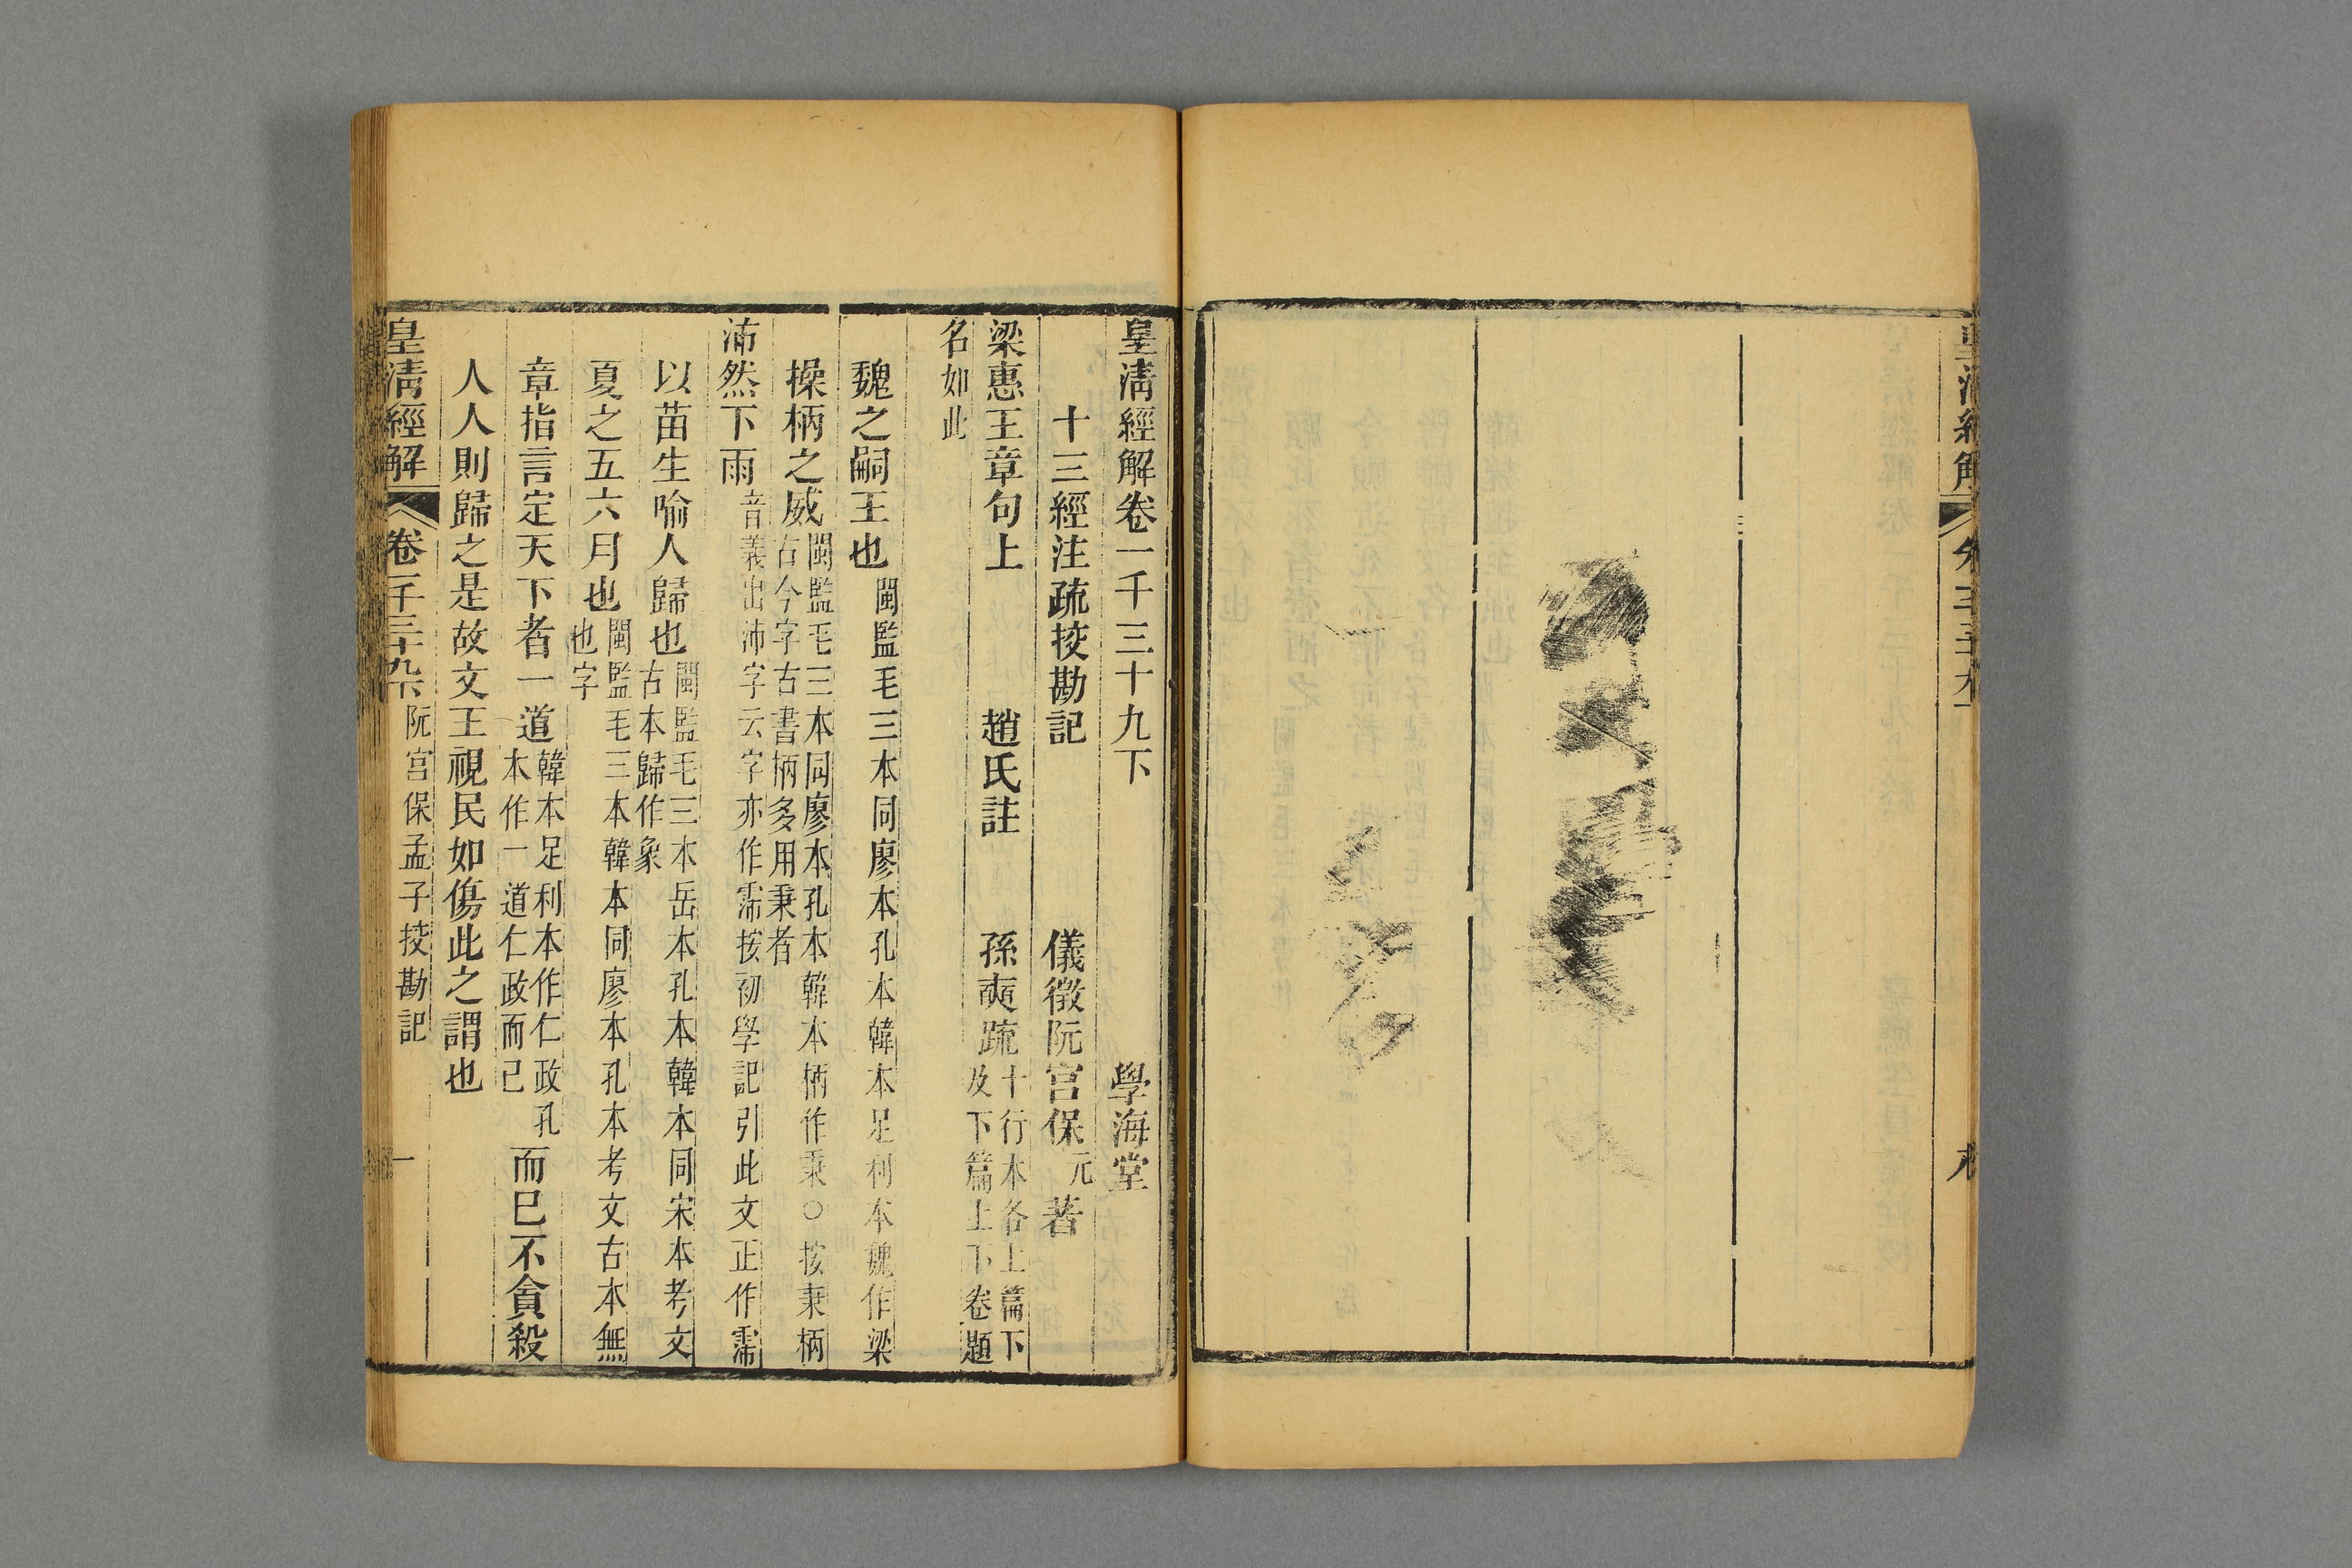 皇清經解卷一千三十九下 學海堂
十三經注疏挍勘記 儀徵阮宮保元著
梁惠王章句上 趙氏註 孫奭疏十行本各上篇下
及下篇上下卷題
名如此
魏之嗣王也閩監毛三本同廖本孔本韓本足利本魏作梁
操柄之威閩監毛三本同廖本孔本韓本柄作秉○按秉柄
古今字古書柄多用秉者
沛然下雨音義出沛字云字亦作霈按初學記引此文正作霈
以苗生喻人歸也閩監毛三本岳本孔本韓本同宋本考文
古本歸作象
夏之五六月也閩監毛三本韓本同廖本孔本考文古本無
也字
章指言定天下者一道韓本足利本作仁政孔
本作一道仁政而已
而已不貪殺
人人則歸之是故文王視民如傷此之謂也
皇清經解 卷一千三十九下 阮宮保孟子挍勘記 一
皇清經解